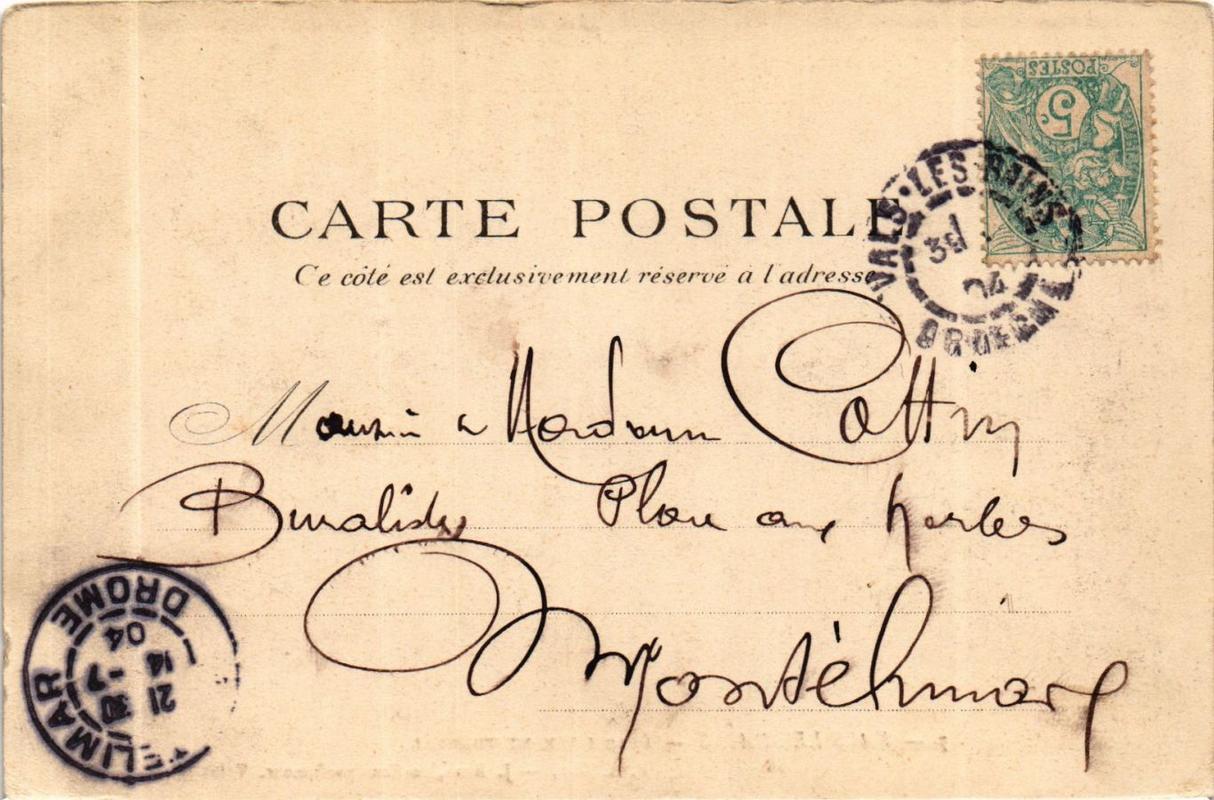 POSTES
5c
CARTE POSTALE
Ce côté est exclusivement réservé à l'adresse
VALS-LES-BAINS
04
ARDECHE
Monsieur & Madame Cottin
Buralistes Place aux herbes
Montélimar
MONTELIMAR
21 30
14 -7
04
DROME